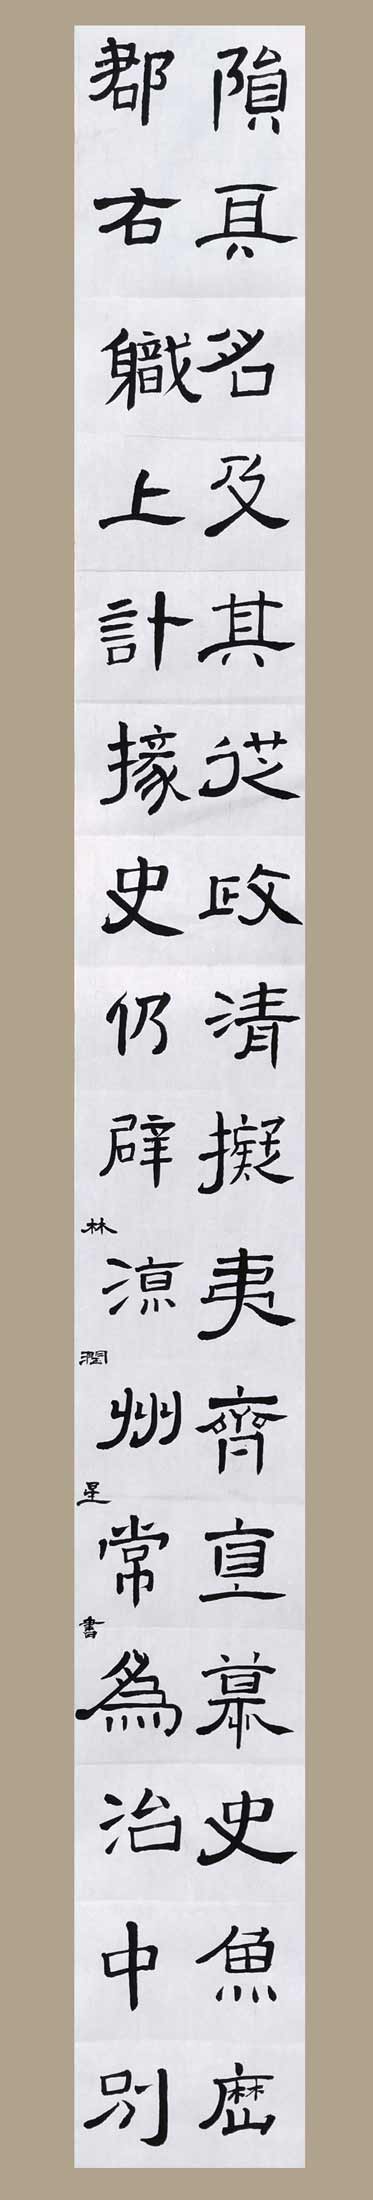 隕其名及其從政清擬夷齊直慕史魚歷
郡右職上計掾史仍辟涼州常為治中別
林潤星書